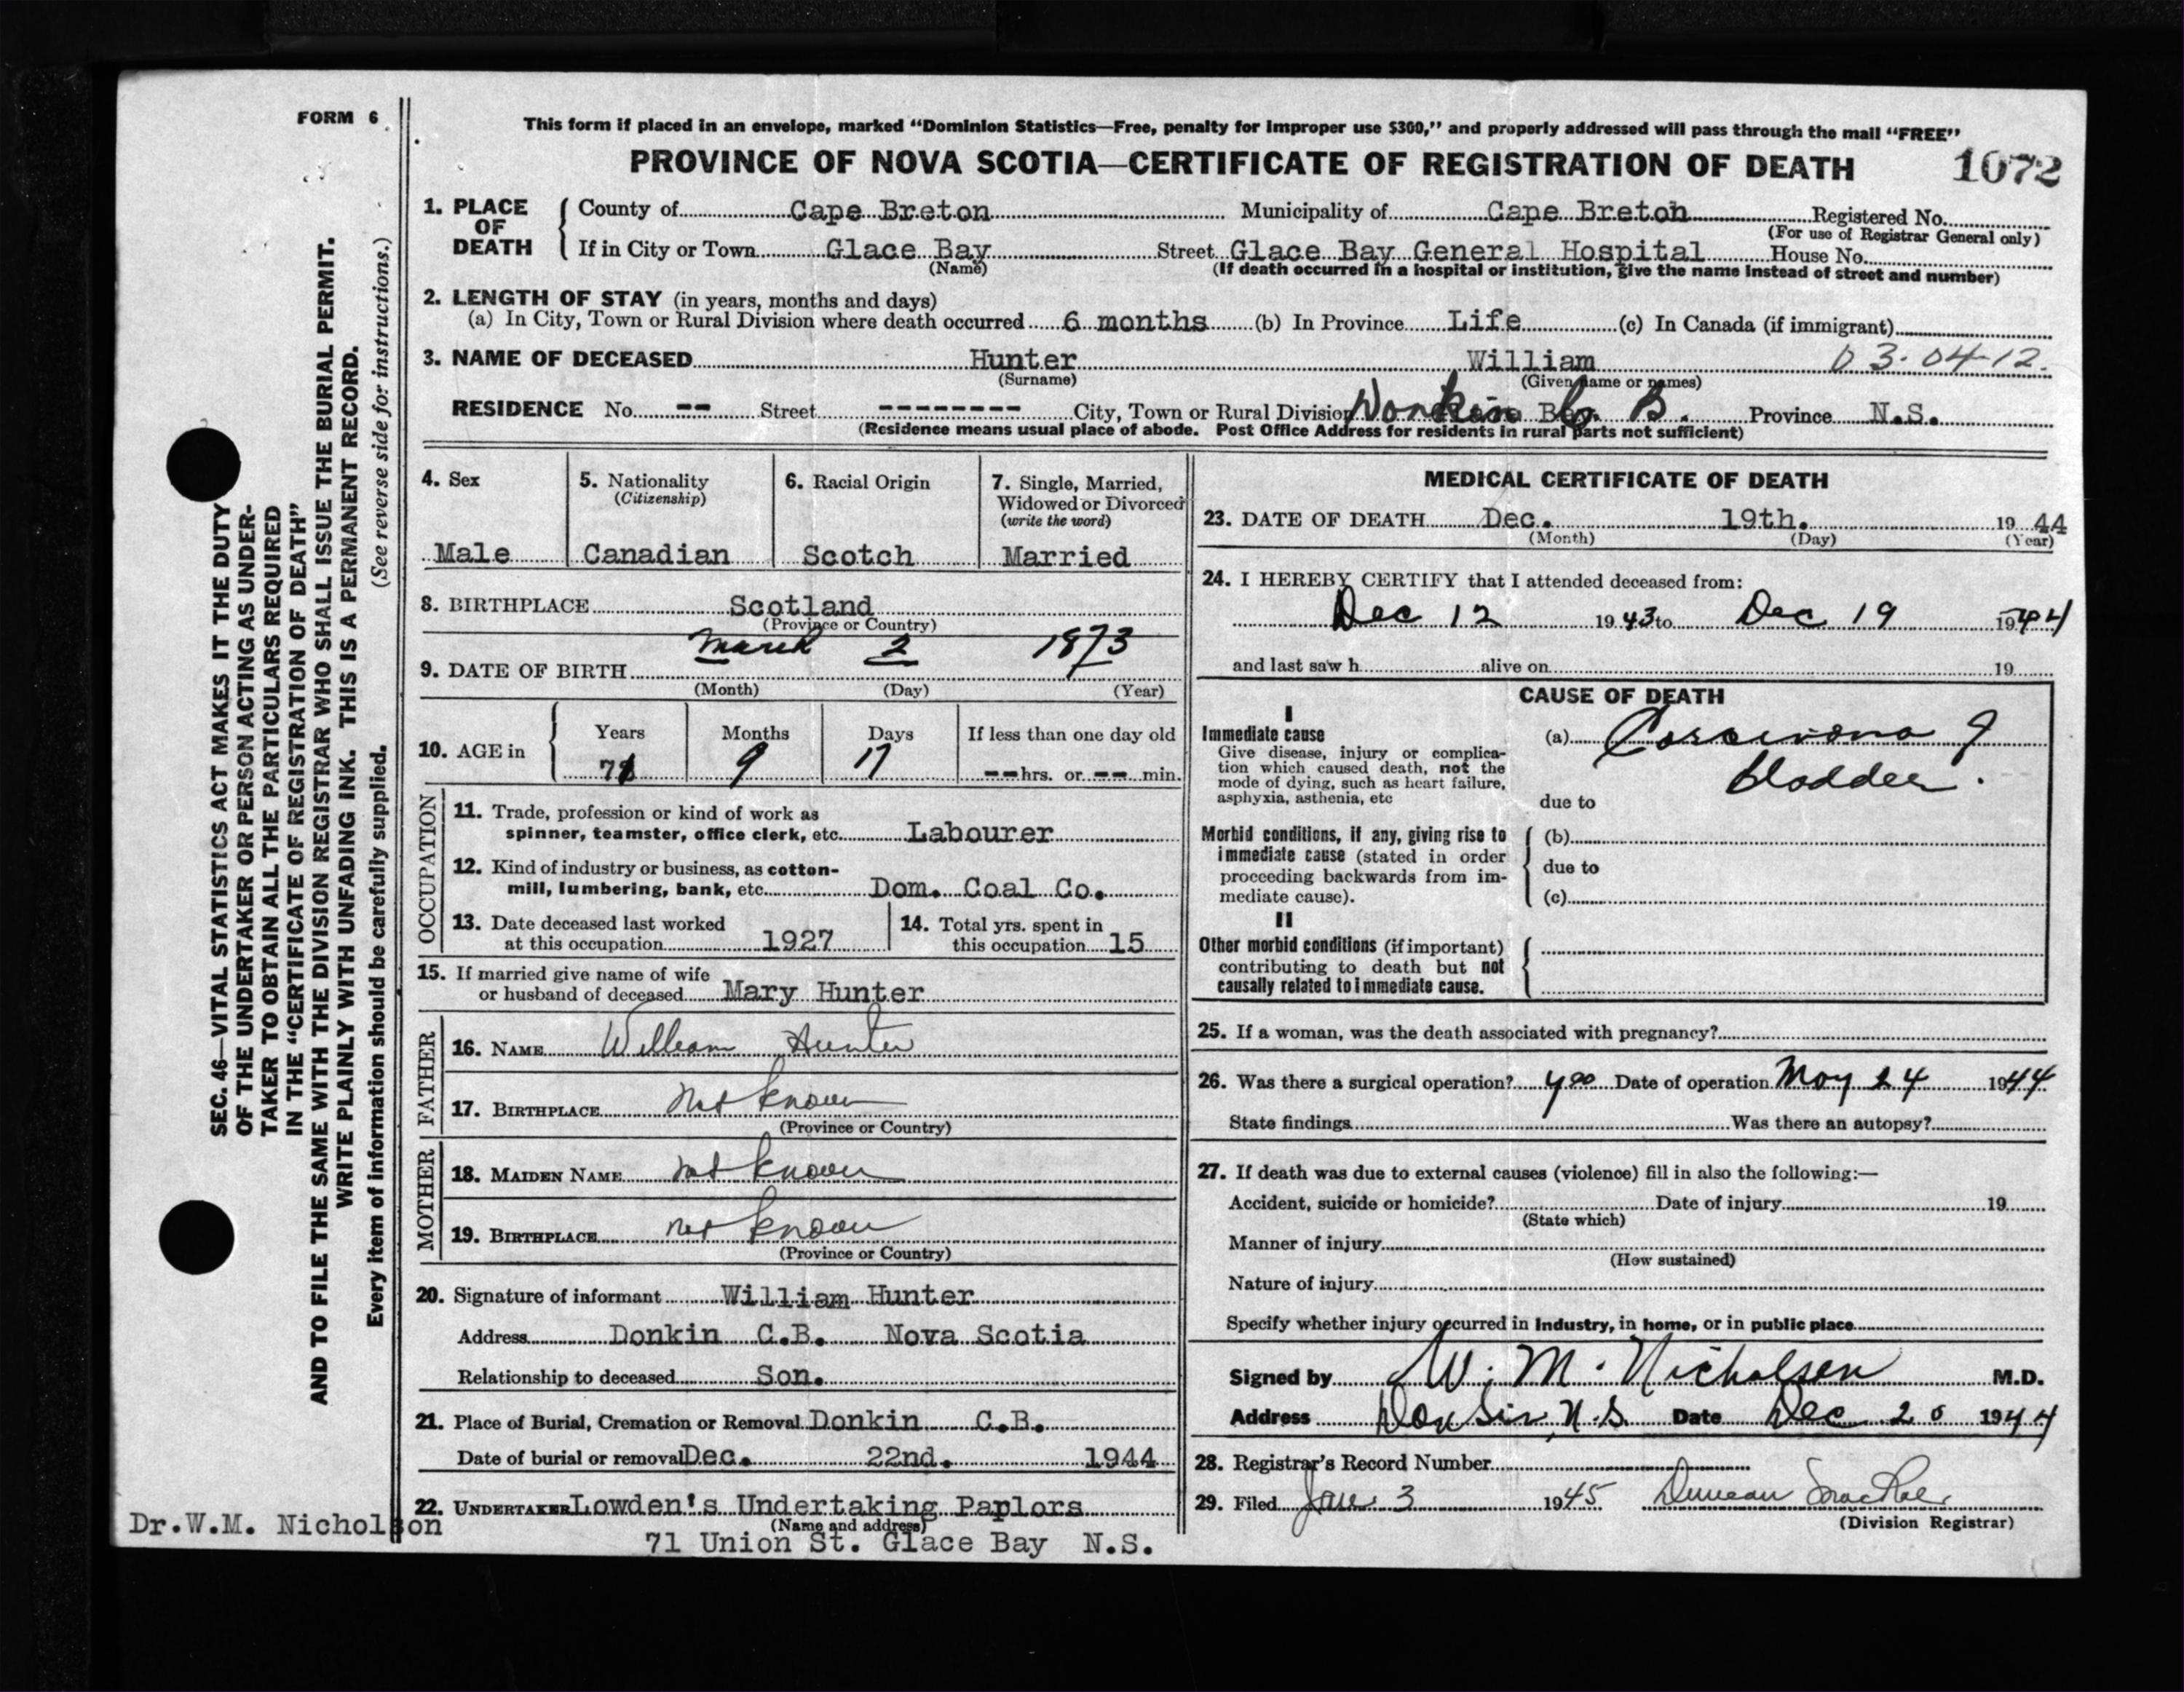 FORM 6
This form if placed in an envelope, marked "Dominion Statistics—Free, penalty for improper use $300," and properly addressed will pass through the mail "FREE"
PROVINCE OF NOVA SCOTIA—CERTIFICATE OF REGISTRATION OF DEATH 1072
1. PLACE OF DEATH { County of Cape Breton Municipality of Cape Breton Registered No.
(For use of Registrar General only)
If in City or Town Glace Bay Street Glace Bay General Hospital House No.
(Name) (If death occurred in a hospital or institution, give the name instead of street and number)
2. LENGTH OF STAY (in years, months and days)
(a) In City, Town or Rural Division where death occurred 6 months (b) In Province Life (c) In Canada (if immigrant)
3. NAME OF DECEASED Hunter William 03-04-12.
(Surname) (Given name or names)
RESIDENCE No. -- Street -------- City, Town or Rural Division Donkin C. B. Province N.S.
(Residence means usual place of abode. Post Office Address for residents in rural parts not sufficient)
4. Sex
Male
5. Nationality
(Citizenship)
Canadian
6. Racial Origin
Scotch
7. Single, Married,
Widowed or Divorced
(write the word)
Married
8. BIRTHPLACE Scotland
(Province or Country)
9. DATE OF BIRTH March 2 1873
(Month) (Day) (Year)
10. AGE in { Years Months Days If less than one day old
71 9 17 -- hrs. or -- min.
OCCUPATION
11. Trade, profession or kind of work as
spinner, teamster, office clerk, etc. Labourer
12. Kind of industry or business, as cotton-
mill, lumbering, bank, etc. Dom. Coal Co.
13. Date deceased last worked
at this occupation 1927
14. Total yrs. spent in
this occupation 15
15. If married give name of wife
or husband of deceased Mary Hunter
FATHER
16. NAME William Hunter
17. BIRTHPLACE not known
(Province or Country)
MOTHER
18. MAIDEN NAME not known
19. BIRTHPLACE not known
(Province or Country)
20. Signature of informant William Hunter
Address Donkin C.B. Nova Scotia
Relationship to deceased Son.
21. Place of Burial, Cremation or Removal Donkin C.B.
Date of burial or removal Dec. 22nd. 1944
22. UNDERTAKER Lowden's Undertaking Parlors
(Name and address)
71 Union St. Glace Bay N.S.
MEDICAL CERTIFICATE OF DEATH
23. DATE OF DEATH Dec. 19th. 19 44
(Month) (Day) (Year)
24. I HEREBY CERTIFY that I attended deceased from:
Dec 12 1943 to Dec 19 1944
and last saw h alive on 19
CAUSE OF DEATH
I
Immediate cause
Give disease, injury or complica-
tion which caused death, not the
mode of dying, such as heart failure,
asphyxia, asthenia, etc
(a) Carcinoma of
bladder.
due to
Morbid conditions, if any, giving rise to
immediate cause (stated in order
proceeding backwards from im-
mediate cause).
(b)
due to
(c)
II
Other morbid conditions (if important)
contributing to death but not
causally related to immediate cause.
25. If a woman, was the death associated with pregnancy?
26. Was there a surgical operation? yes Date of operation May 24 1944
State findings Was there an autopsy?
27. If death was due to external causes (violence) fill in also the following:—
Accident, suicide or homicide? Date of injury 19
(State which)
Manner of injury
(How sustained)
Nature of injury
Specify whether injury occurred in Industry, in home, or in public place
Signed by W. M. Nicholson M.D.
Address Donkin, N.S. Date Dec 20 1944
28. Registrar's Record Number
29. Filed Jan 3 1945 Duncan MacRae
(Division Registrar)
SEC. 46—VITAL STATISTICS ACT MAKES IT THE DUTY
OF THE UNDERTAKER OR PERSON ACTING AS UNDER-
TAKER TO OBTAIN ALL THE PARTICULARS REQUIRED
IN THE "CERTIFICATE OF REGISTRATION OF DEATH"
AND TO FILE THE SAME WITH THE DIVISION REGISTRAR WHO SHALL ISSUE THE BURIAL PERMIT.
WRITE PLAINLY WITH UNFADING INK. THIS IS A PERMANENT RECORD.
Every item of information should be carefully supplied. (See reverse side for instructions.)
Dr.W.M. Nicholson